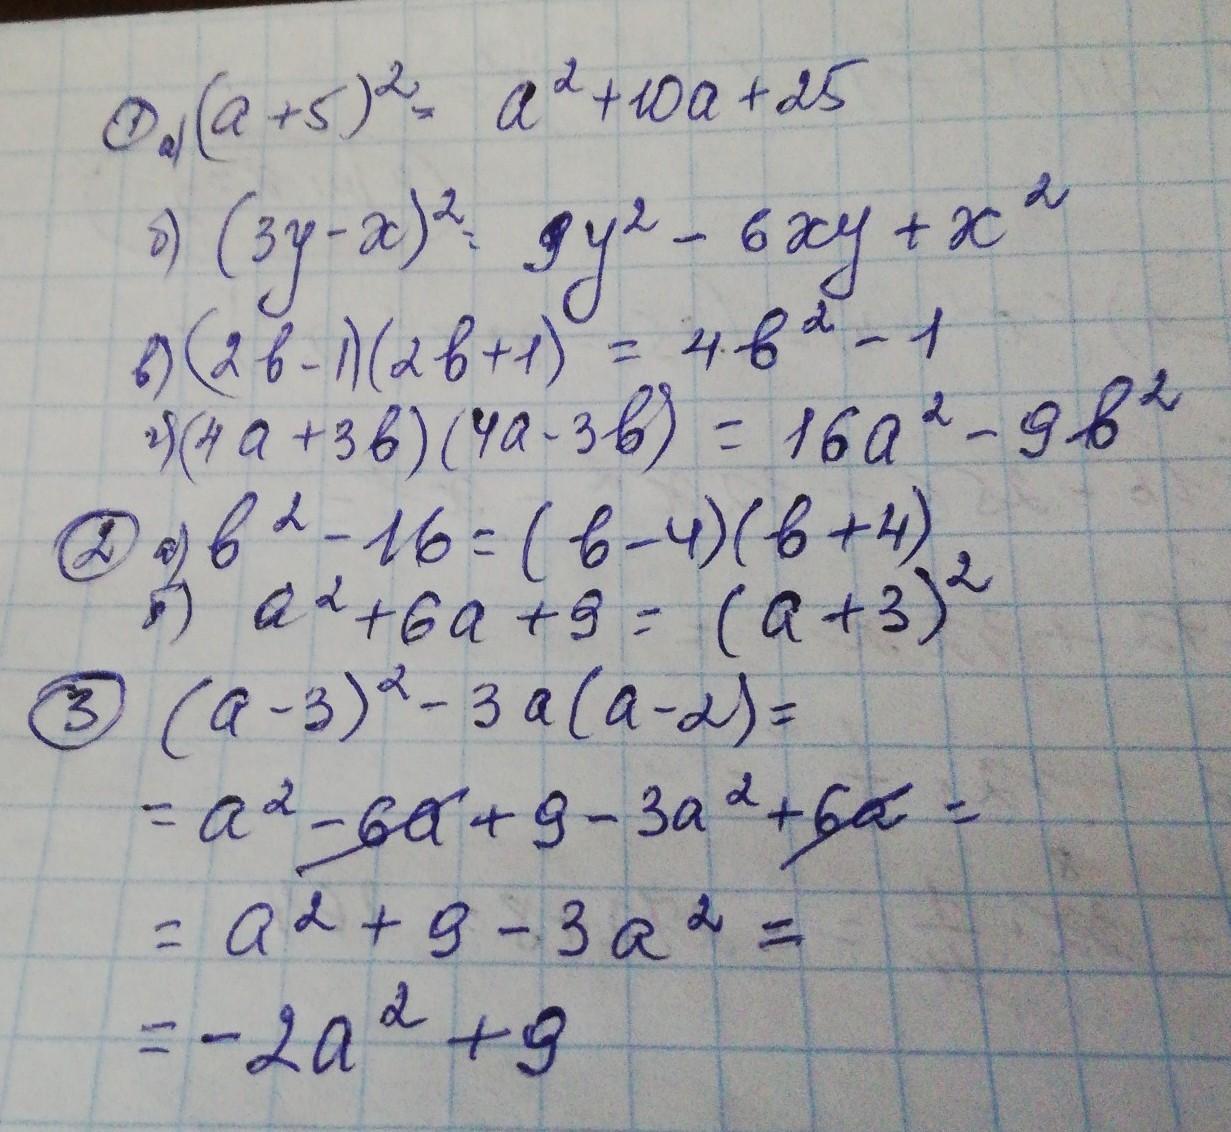 ① а) (a+5)² = a²+10a+25
б) (3y-x)² = 9y² - 6xy + x²
в) (2b-1)(2b+1) = 4b² - 1
г) (4a+3b)(4a-3b) = 16a² - 9b²
② а) b² - 16 = (b-4)(b+4)
б) a² + 6a + 9 = (a+3)²
③ (a-3)² - 3a(a-2) =
= a² - 6a + 9 - 3a² + 6a =
= a² + 9 - 3a² =
= -2a² + 9